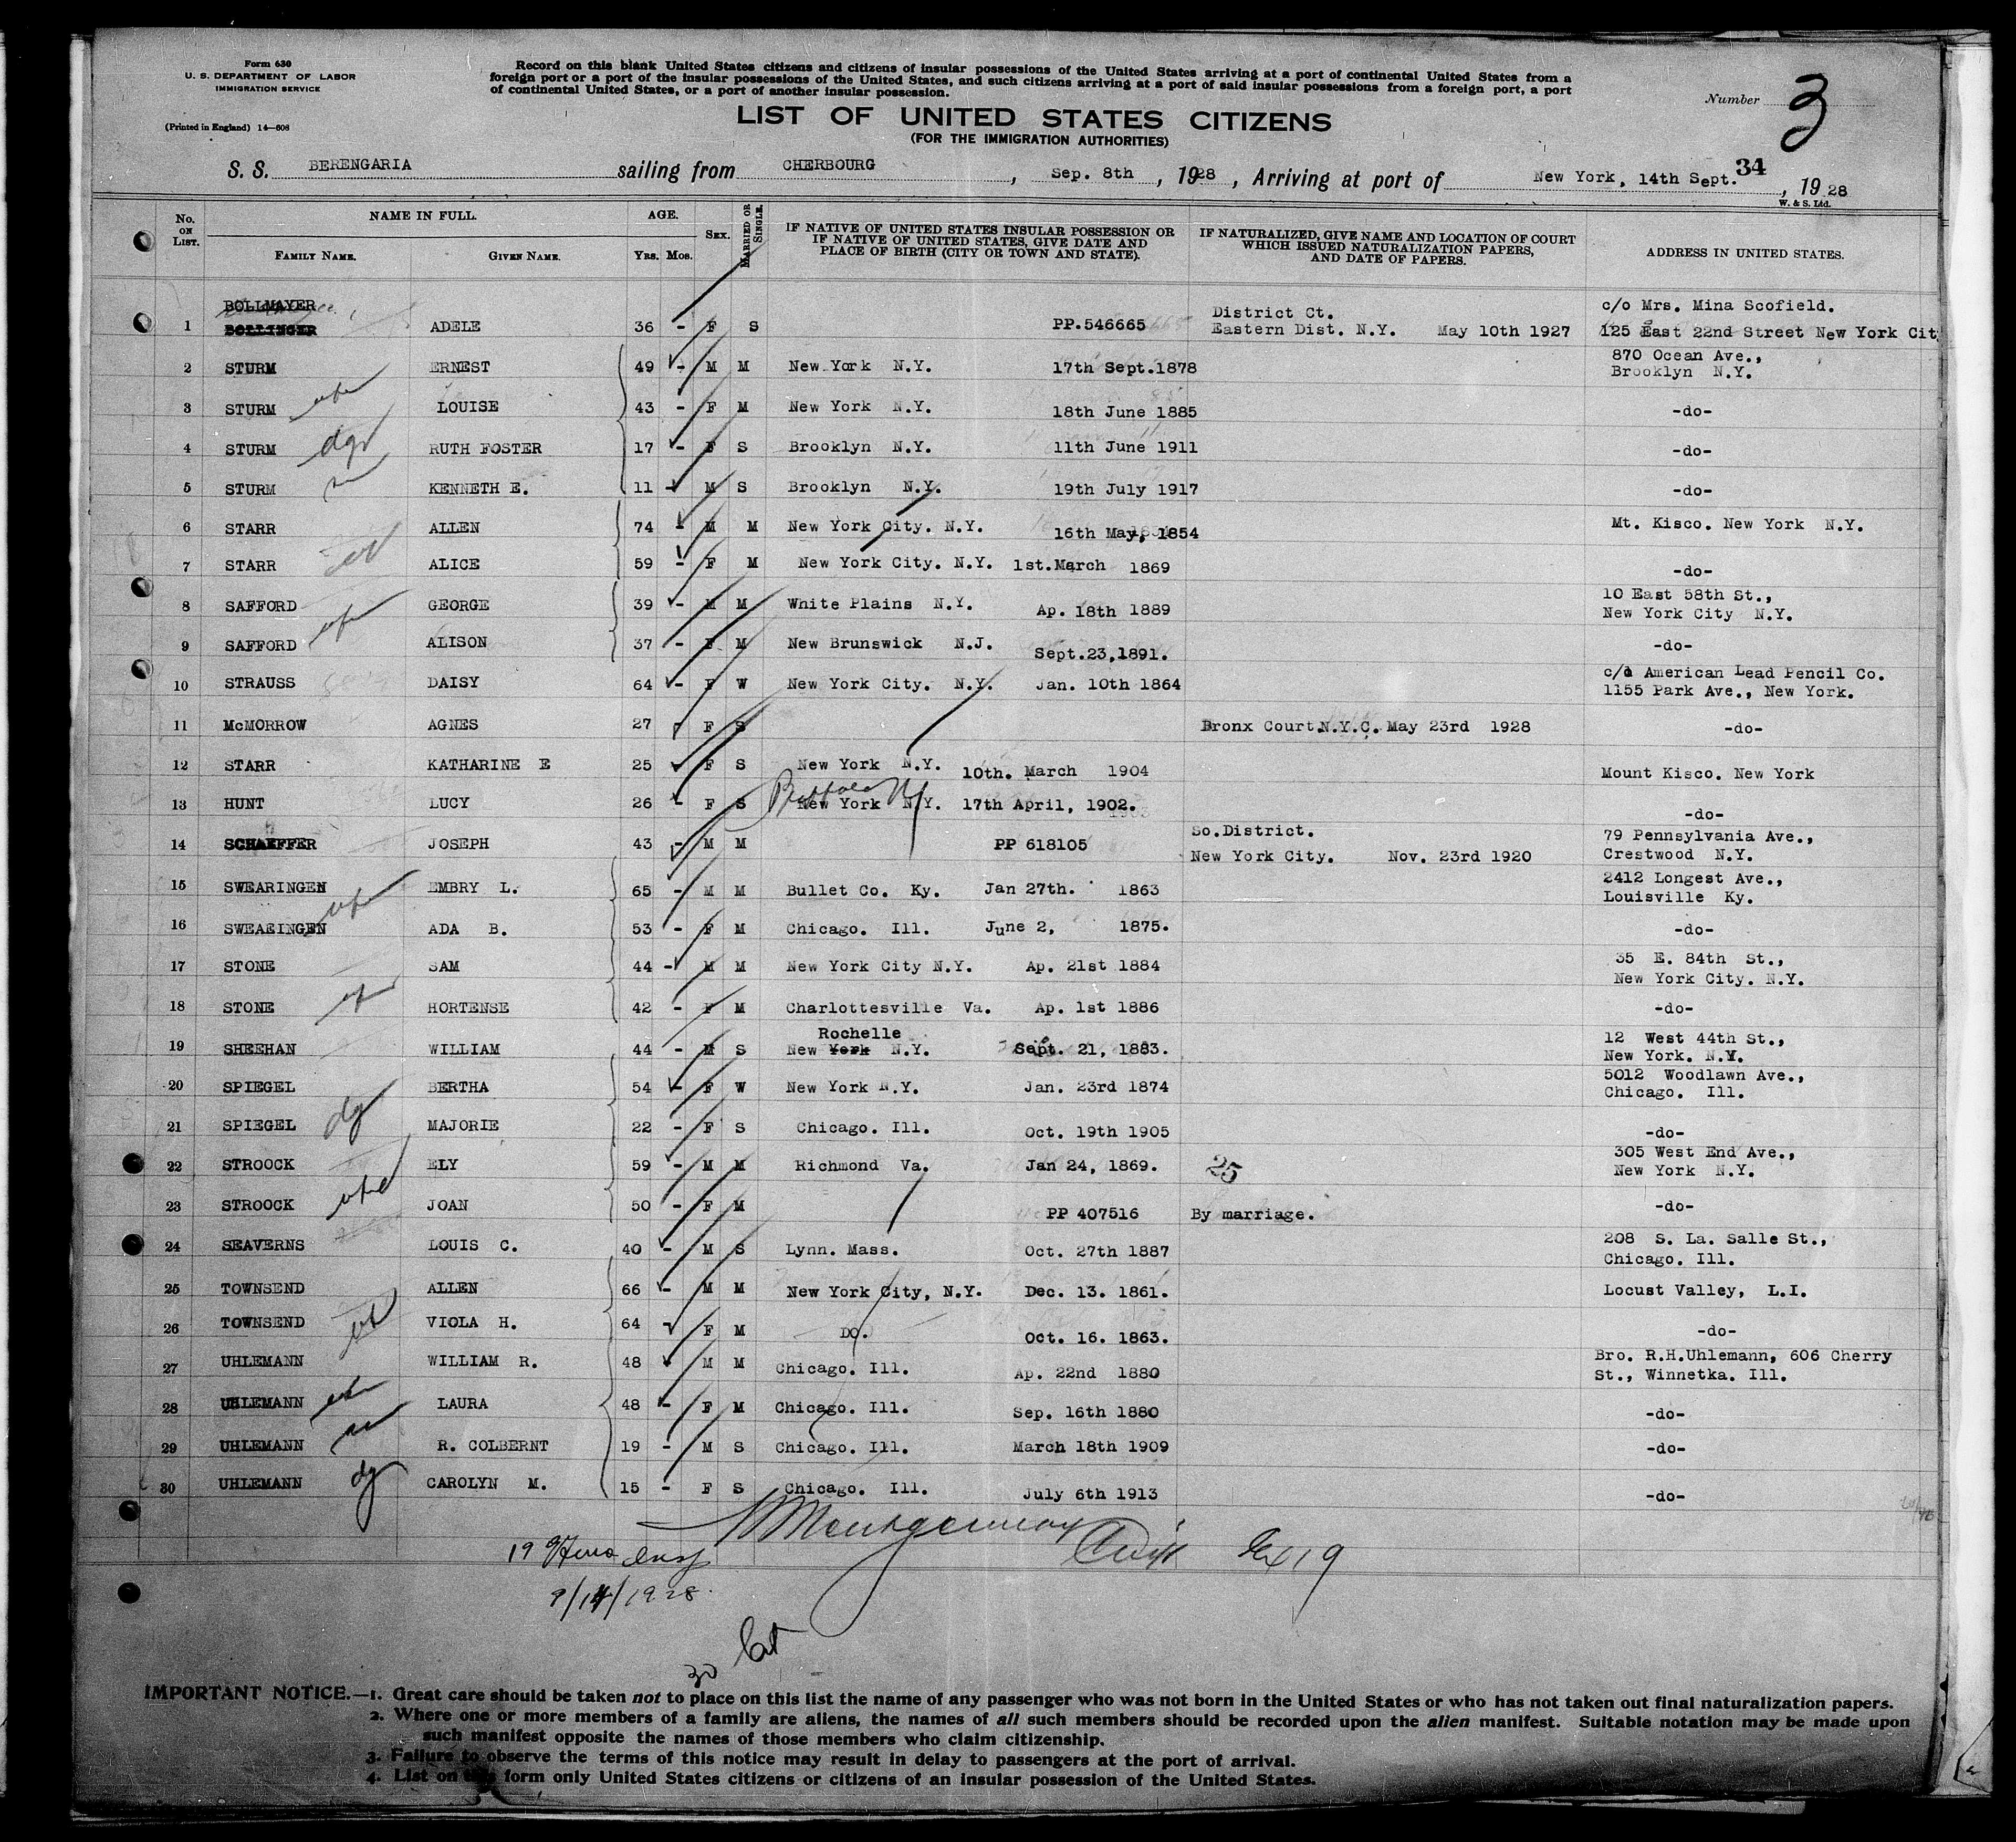 Form 630
U. S. DEPARTMENT OF LABOR
IMMIGRATION SERVICE
(Printed in England) 14—608
Record on this blank United States citizens and citizens of insular possessions of the United States arriving at a port of continental United States from a
foreign port or a port of the insular possessions of the United States, and such citizens arriving at a port of said insular possessions from a foreign port, a port
of continental United States, or a port of another insular possession.
Number 3
LIST OF UNITED STATES CITIZENS
(FOR THE IMMIGRATION AUTHORITIES)
34
S. S. BERENGARIA sailing from CHERBOURG , Sep. 8th , 1928 , Arriving at port of New York, 14th Sept. , 1928
W. & S. Ltd.
No. ON LIST. NAME IN FULL. AGE. SEX. MARRIED OR SINGLE. IF NATIVE OF UNITED STATES INSULAR POSSESSION OR IF NATIVE OF UNITED STATES, GIVE DATE AND PLACE OF BIRTH (CITY OR TOWN AND STATE). IF NATURALIZED, GIVE NAME AND LOCATION OF COURT WHICH ISSUED NATURALIZATION PAPERS, AND DATE OF PAPERS. ADDRESS IN UNITED STATES.
FAMILY NAME. GIVEN NAME. Yrs. Mos.
BOLLMAYER District Ct. c/o Mrs. Mina Scofield.
1 BOLLINGER ADELE 36 - F S PP.546665 Eastern Dist. N.Y. May 10th 1927 125 East 22nd Street New York Cit
2 STURM ERNEST 49 - M M New York N.Y. 17th Sept.1878 870 Ocean Ave.,
Brooklyn N.Y.
3 STURM wfe LOUISE 43 - F M New York N.Y. 18th June 1885 -do-
4 STURM dgr RUTH FOSTER 17 - F S Brooklyn N.Y. 11th June 1911 -do-
5 STURM KENNETH E. 11 - M S Brooklyn N.Y. 19th July 1917 -do-
6 STARR ALLEN 74 - M M New York City. N.Y. 16th May, 1854 Mt. Kisco. New York N.Y.
7 STARR ALICE 59 - F M New York City. N.Y. 1st.March 1869 -do-
8 SAFFORD GEORGE 39 - M M White Plains N.Y. Ap. 18th 1889 10 East 58th St.,
New York City N.Y.
9 SAFFORD wfe ALISON 37 - F M New Brunswick N.J. Sept.23,1891. -do-
10 STRAUSS DAISY 64 - F W New York City. N.Y. Jan. 10th 1864 c/o American Lead Pencil Co.
1155 Park Ave., New York.
11 McMORROW AGNES 27 F S Bronx Court.N.Y.C. May 23rd 1928 -do-
12 STARR KATHARINE E 25 - F S New York N.Y. 10th. March 1904 Mount Kisco. New York
13 HUNT LUCY 26 - F S Buffalo NY New York N.Y. 17th April, 1902. -do-
14 SCHAEFFER JOSEPH 43 - M M PP 618105 So.District. 79 Pennsylvania Ave.,
New York City. Nov. 23rd 1920 Crestwood N.Y.
15 SWEARINGEN EMBRY L. 65 - M M Bullet Co. Ky. Jan 27th. 1863 2412 Longest Ave.,
Louisville Ky.
16 SWEAEINGEN wfe ADA B. 53 - F M Chicago. Ill. June 2, 1875. -do-
17 STONE SAM 44 - M M New York City N.Y. Ap. 21st 1884 35 E. 84th St.,
New York City. N.Y.
18 STONE wfe HORTENSE 42 - F M Charlottesville Va. Ap. 1st 1886 -do-
Rochelle
19 SHEEHAN WILLIAM 44 - M S New York N.Y. Sept. 21, 1883. 12 West 44th St.,
New York. N.Y.
20 SPIEGEL BERTHA 54 - F W New York N.Y. Jan. 23rd 1874 5012 Woodlawn Ave.,
Chicago. Ill.
21 SPIEGEL dg MAJORIE 22 - F S Chicago. Ill. Oct. 19th 1905 -do-
22 STROOCK ELY 59 - M M Richmond Va. Jan 24, 1869. 25 305 West End Ave.,
New York N.Y.
23 STROOCK wfe JOAN 50 - F M PP 407516 By marriage. -do-
24 SEAVERNS LOUIS C. 40 - M S Lynn. Mass. Oct. 27th 1887 208 S. La. Salle St.,
Chicago. Ill.
25 TOWNSEND ALLEN 66 - M M New York City, N.Y. Dec. 13. 1861. Locust Valley, L.I.
26 TOWNSEND VIOLA H. 64 - F M DO. Oct. 16. 1863. -do-
27 UHLEMANN WILLIAM R. 48 M M Chicago. Ill. Ap. 22nd 1880 Bro. R.H.Uhlemann, 606 Cherry
St., Winnetka. Ill.
28 UHLEMANN LAURA 48 - F M Chicago. Ill. Sep. 16th 1880 -do-
29 UHLEMANN R. COLBERNT 19 - M S Chicago. Ill. March 18th 1909 -do-
30 UHLEMANN dg CAROLYN M. 15 - F S Chicago. Ill. July 6th 1913 -do-
Montgomery
19
9/14/1928.
30
IMPORTANT NOTICE.—1. Great care should be taken not to place on this list the name of any passenger who was not born in the United States or who has not taken out final naturalization papers.
2. Where one or more members of a family are aliens, the names of all such members should be recorded upon the alien manifest. Suitable notation may be made upon
such manifest opposite the names of those members who claim citizenship.
3. Failure to observe the terms of this notice may result in delay to passengers at the port of arrival.
4. List on this form only United States citizens or citizens of an insular possession of the United States.